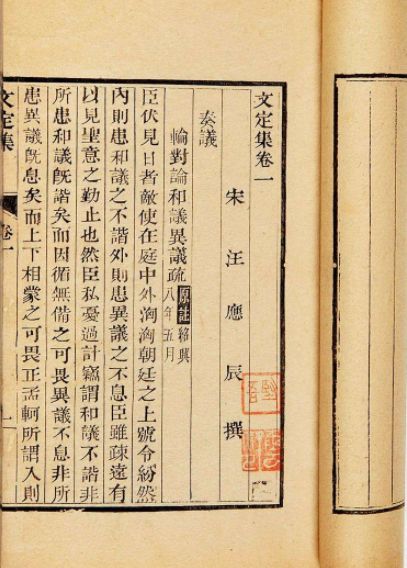 文定集卷一
宋 汪應辰 撰
奏議
輪對論和議異議疏 原註紹興八年五月
臣伏見日者敵使在庭中外洶洶朝廷之上號令紛然
內則患和議之不諧外則患異議之不息臣雖疎遠有
以見聖意之勤止也然臣私憂過計竊謂和議不諧非
所患和議旣諧矣而因循無備之可畏異議不息非所
患異議旣息矣而上下相蒙之可畏正孟軻所謂入則
文定集
卷一
一